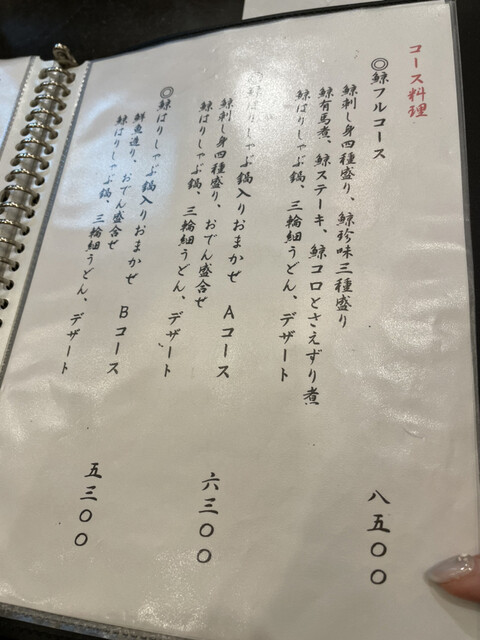 コース料理
◎鯨フルコース 八五〇〇
鯨刺し身四種盛り、鯨珍味三種盛り
鯨有馬煮、鯨ステーキ、鯨コロとさえずり煮
鯨はりしゃぶ鍋、三輪細うどん、デザート
◎鯨はりしゃぶ鍋入りおまかせ Aコース 六三〇〇
鯨刺し身四種盛り、おでん盛合せ
鯨はりしゃぶ鍋、三輪細うどん、デザート
◎鯨はりしゃぶ鍋入りおまかせ Bコース 五三〇〇
鮮魚造り、おでん盛合せ
鯨はりしゃぶ鍋、三輪細うどん、デザート